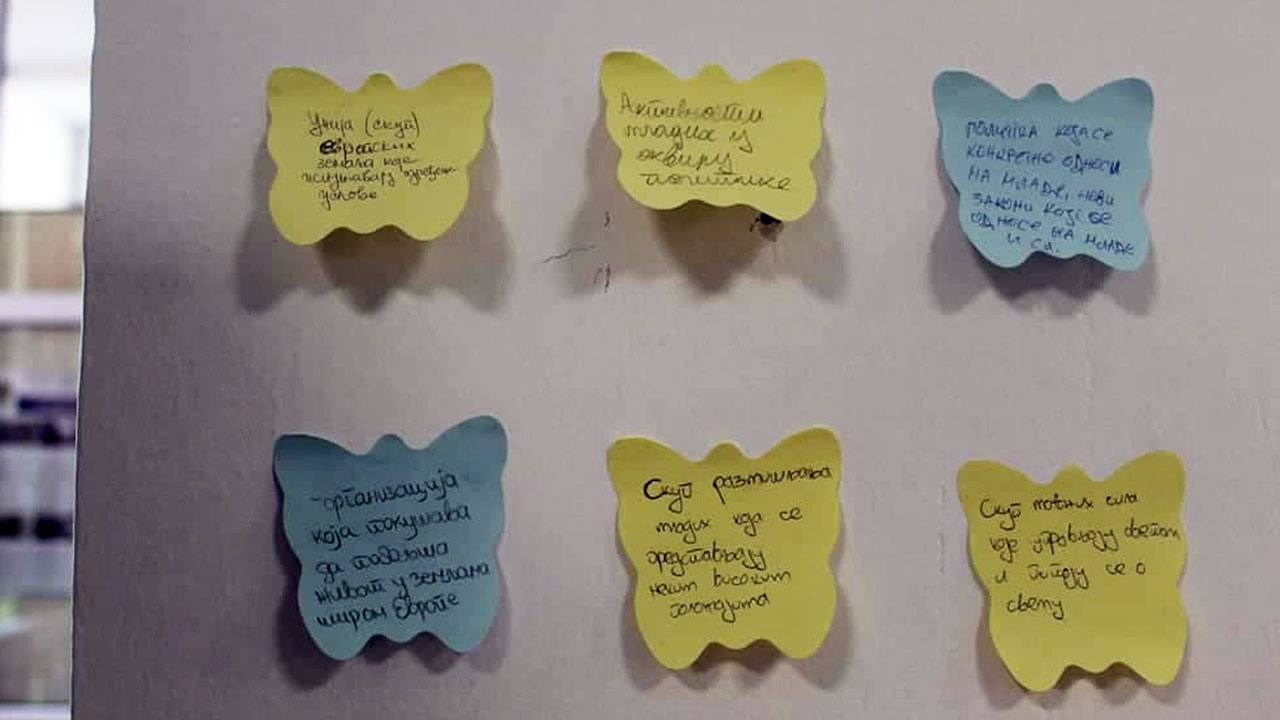 Унија (скуп)
европских
земаља које
испуњавају одређене
услове
Активности
младих у
оквиру
политике
ПОЛИТИКА КОЈА СЕ
КОНКРЕТНО ОДНОСИ
НА МЛАДЕ, НОВИ
ЗАКОНИ КОЈИ СЕ
ОДНОСЕ НА МЛАДЕ
И СЛ.
организација
која покушава
да побољша
живот у земљама
широм Европе
Скуп размишљања
младих која се
представљају
неким високим
положајима
Скуп моћних сила
које управљају светом
и питају се о
свему